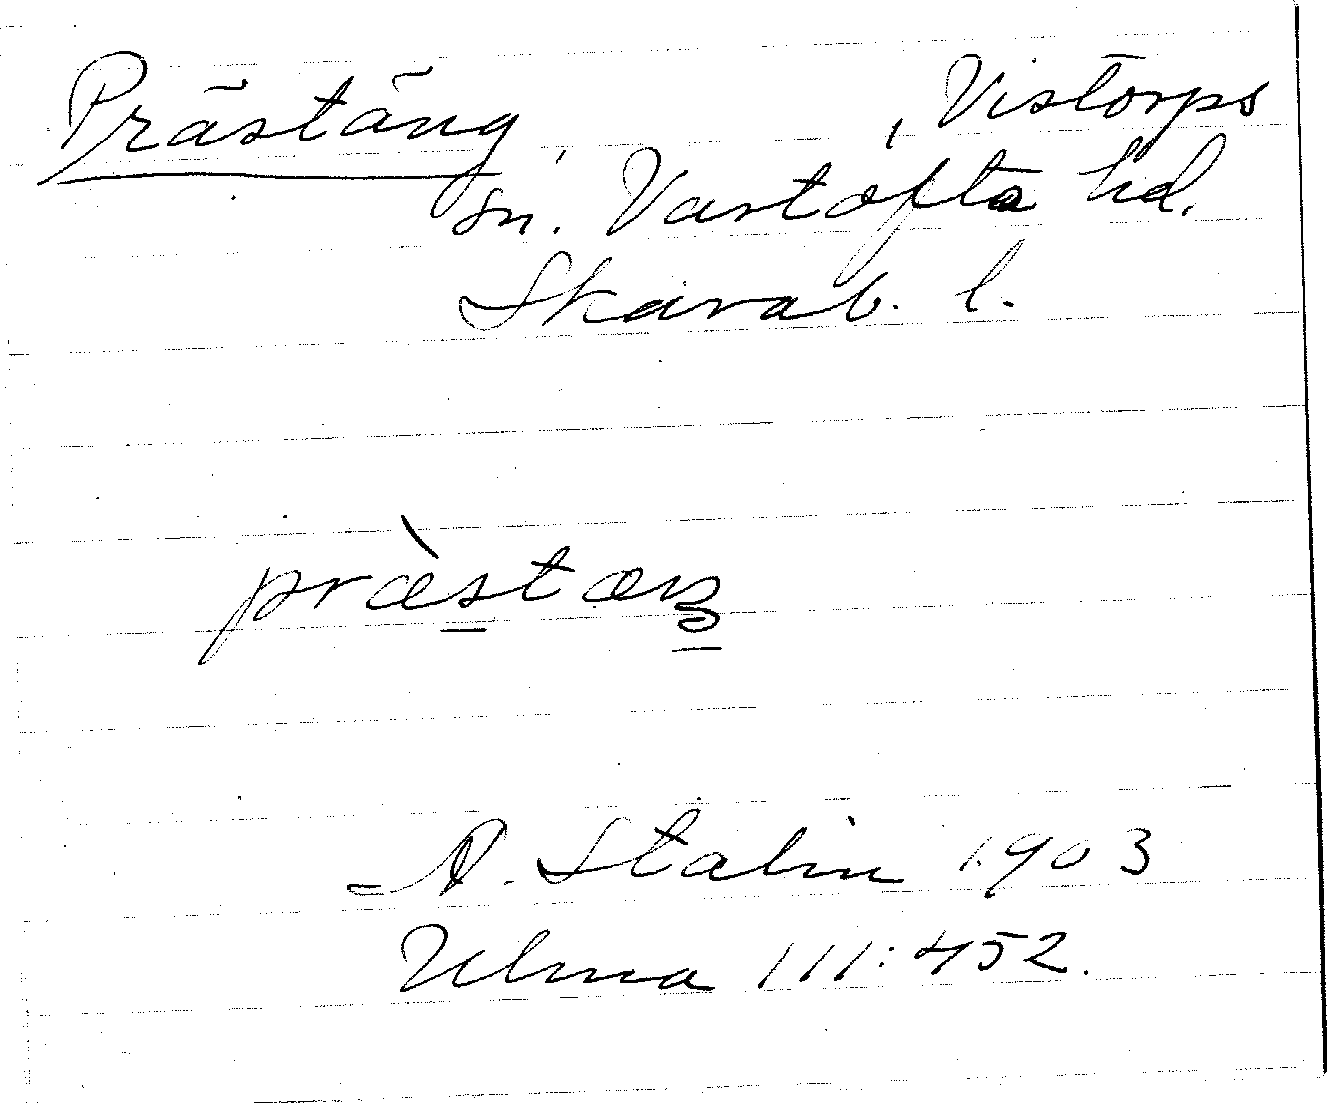 Prästäng, , Vistorps
sn. Vartofta hd.
Skarab. l.
præ̀stæŋ
A. Stalin 1903
Ulma 111:452.